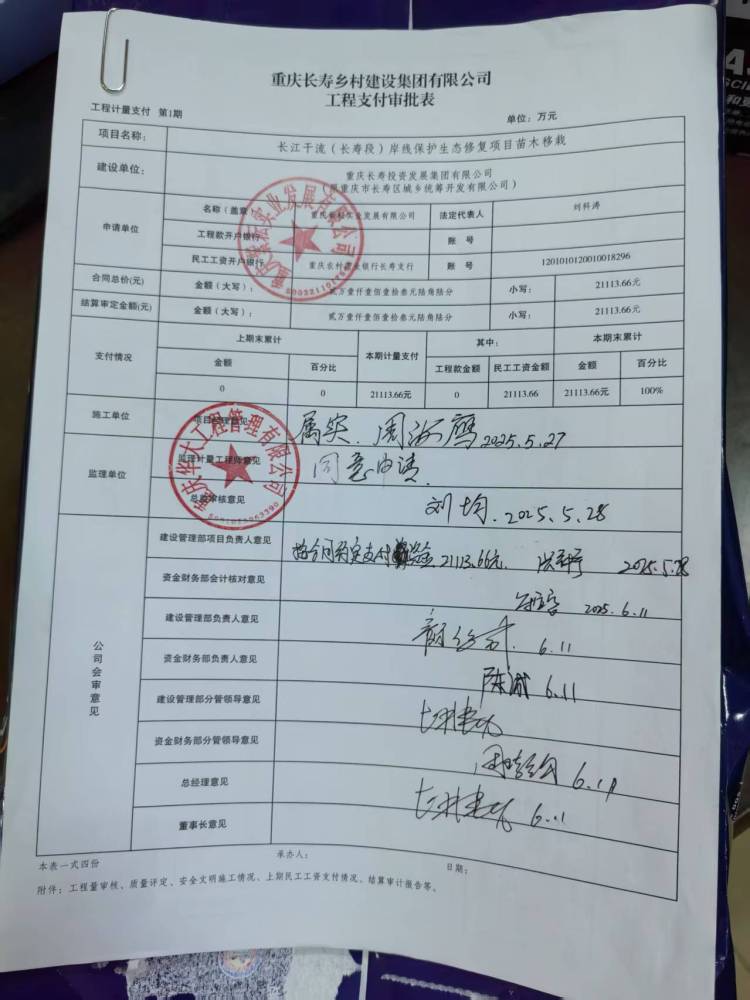 重庆长寿乡村建设集团有限公司
工程支付审批表
工程计量支付 第1期
单位：万元
项目名称：
长江干流（长寿段）岸线保护生态修复项目苗木移栽
建设单位：
重庆长寿投资发展集团有限公司
（原重庆市长寿区城乡统筹开发有限公司）
申请单位
名称（盖章）
实业发展有限公司
法定代表人
刘科涛
工程款开户银行
账 号
民工工资开户银行
重庆农村商业银行长寿支行
账 号
1201010120010018296
合同总价(元)
金额（大写）：
贰万壹仟壹佰壹拾叁元陆角陆分
小写：
21113.66元
结算审定金额(元)
金额（大写）：
贰万壹仟壹佰壹拾叁元陆角陆分
小写：
21113.66元
支付情况
上期末累计
本期计量支付
其中：
本期末累计
金额
百分比
工程款金额
民工工资金额
金额
百分比
0
0
21113.66元
0
21113.66
21113.66元
100%
施工单位
项目经理意见
属实 周 鹰 2025.5.27
监理单位
监理计量工程师意见
同意申请
总监审核意见
刘均 2025.5.28
重庆华大工程管理有限公司
公司会审意见
建设管理部项目负责人意见
按合同约定支付 21113.66元 2025.5.28
资金财务部会计核对意见
2025.6.11
建设管理部负责人意见
6.11
资金财务部负责人意见
陈 6.11
建设管理部分管领导意见
资金财务部分管领导意见
总经理意见
6.11
董事长意见
本表一式四份
承办人：
日期：
附件：工程量审核、质量评定、安全文明施工情况、上期民工工资支付情况、结算审计报告等。